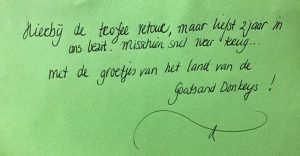 Hierbij de trofee retour, maar liefst 2 jaar in
ons bezit. Misschien snel weer terug...
met de groetjes van het land van de
Goats and Donkeys !